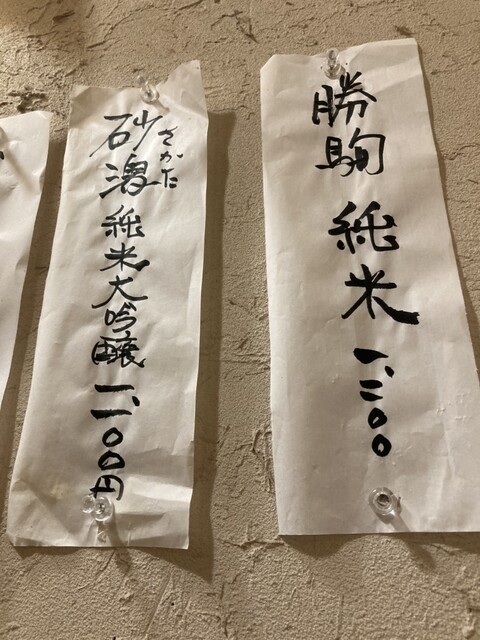 勝駒 純米 一、二〇〇
砂潟 純米大吟醸 一、一〇〇円
さがた